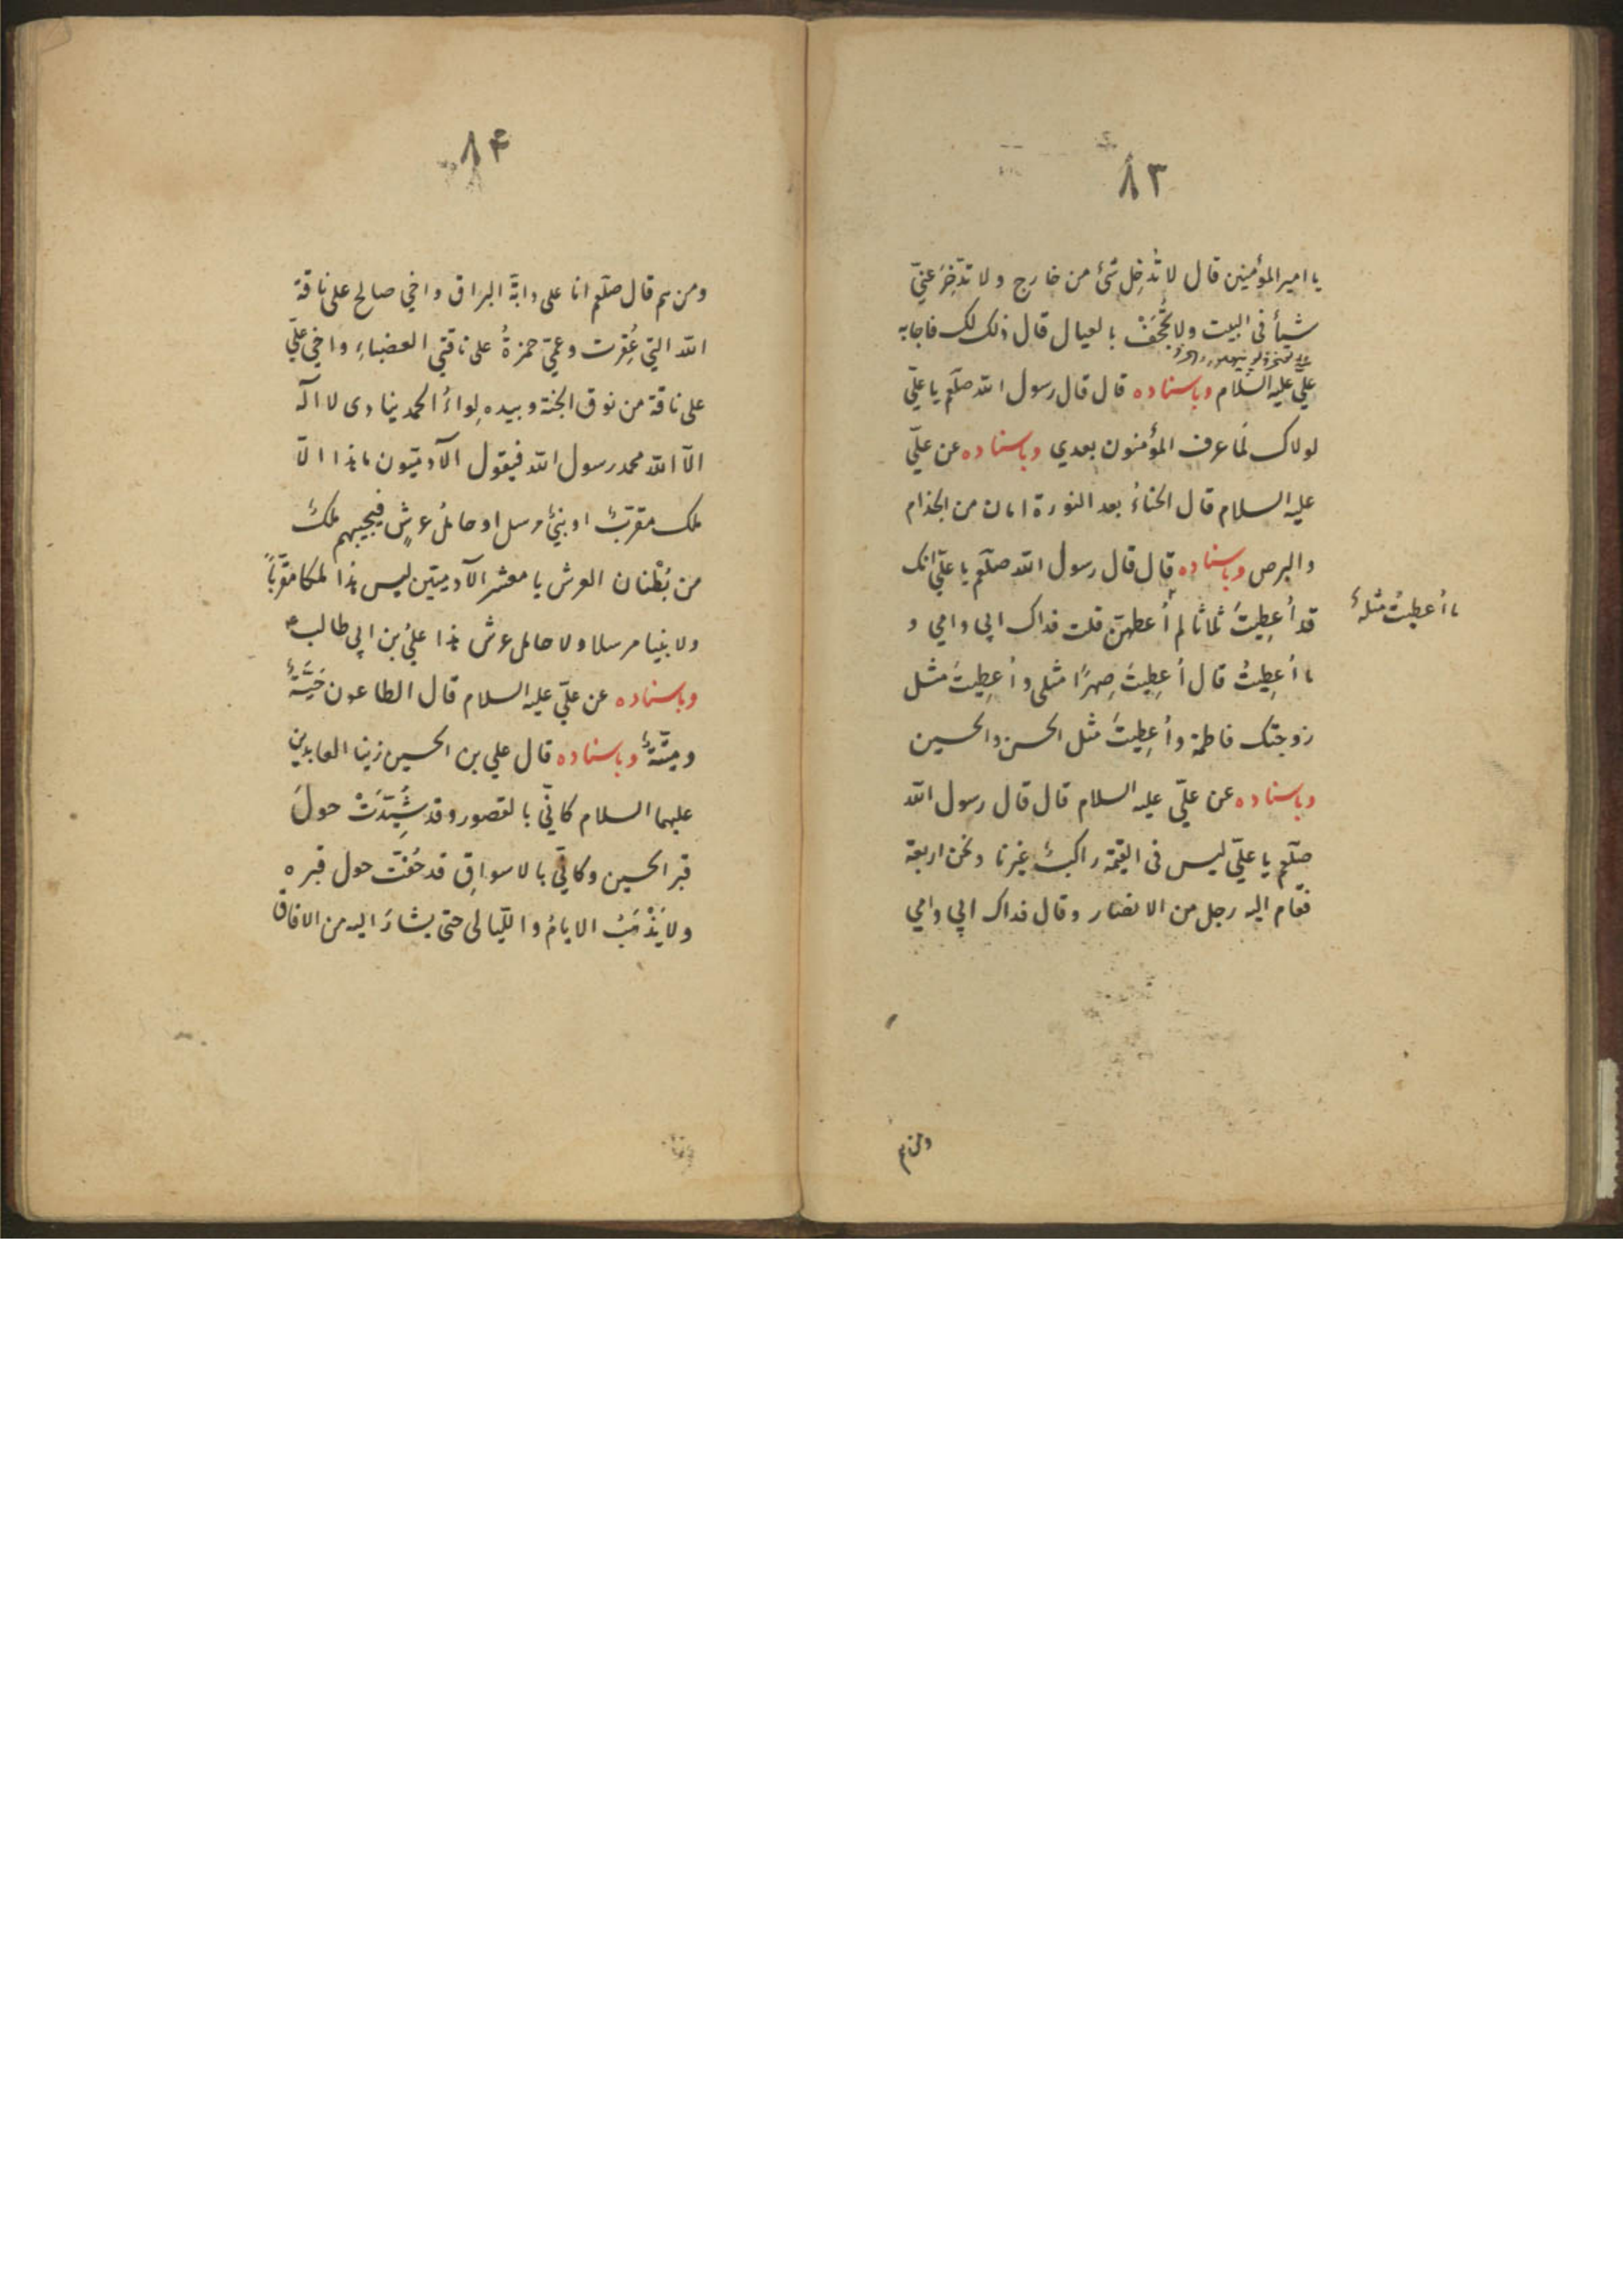 ٨٣
يا امير المؤمنين قال لا تُدْخِل شئ من خارج ولا تدّخِرَ عنيّ
شيأ فى البيت ولا تُجْحَفْ بالعيال قال ذلك لك فاجابه
علىّ عليه السّلام وباسناده قال قال رسول الله صلّعم يا علىّ
لولاك لَما عرف المؤمنون بعدي وباسناده عن علىّ
عليه السلام قال الحناءُ بعد النورة امان من الجذام
والبرص وباسناده قال قال رسول الله صلّعم يا علىّ انك
قد اُعطِيتَ ثلثا لم اُعطهنّ قلت فداك ابى وامي و
ما اُعطيتُ مثلهُ
ما اُعطِيتُ قال اُعطِيتَ صِهرًا مثلى واُعطِيتَ مثل
زوجتك فاطمة واُعطِيتَ مثل الحسن والحسين
وباسناده عن علىّ عليه السلام قال قال رسول الله
صلّعم يا علىّ ليس فى القيمة راكبٌ غيرنا ونحن اربعة
فقام اليه رجل من الانصار وقال فداك ابي وامي
ومن هم
٨۴
ومن هم قال صلّعم انا على دابّة البراق واخي صالح على ناقة
الله التي عُقِرت وعمّي حمزةُ على ناقتي العضباءِ واخي علىّ
على ناقة من نوق الجنة وبيده لِواءُ الحمد ينادى لا اله
الّا الله محمد رسول الله فيقول الآدميّون ما هذا الّا
ملك مقرّبٌ او نبيٌ مرسل او حاملُ عرشٍ فيجيبهم ملكٌ
من بُطْنان العرش يا معشر الآدميّين ليس هذا ملكا مقرّباً
ولا نبيا مرسلا ولا حامل عرش هذا عليُ بن ابي طالب
وباسناده عن علىّ عليه السلام قال الطاعون
ميتةٌ وباسناده قال علي بن الحسين زين العابدين
عليهما السلام كانّي بالقصور وقد شُيِّدَتْ حولَ
قبر الحسين وكانّي بالاسواقِ قد حُفّت حول قبره
ولا يَذْهَبُ الايامُ واللّيالى حتى يسَارَ اليه من الافاق